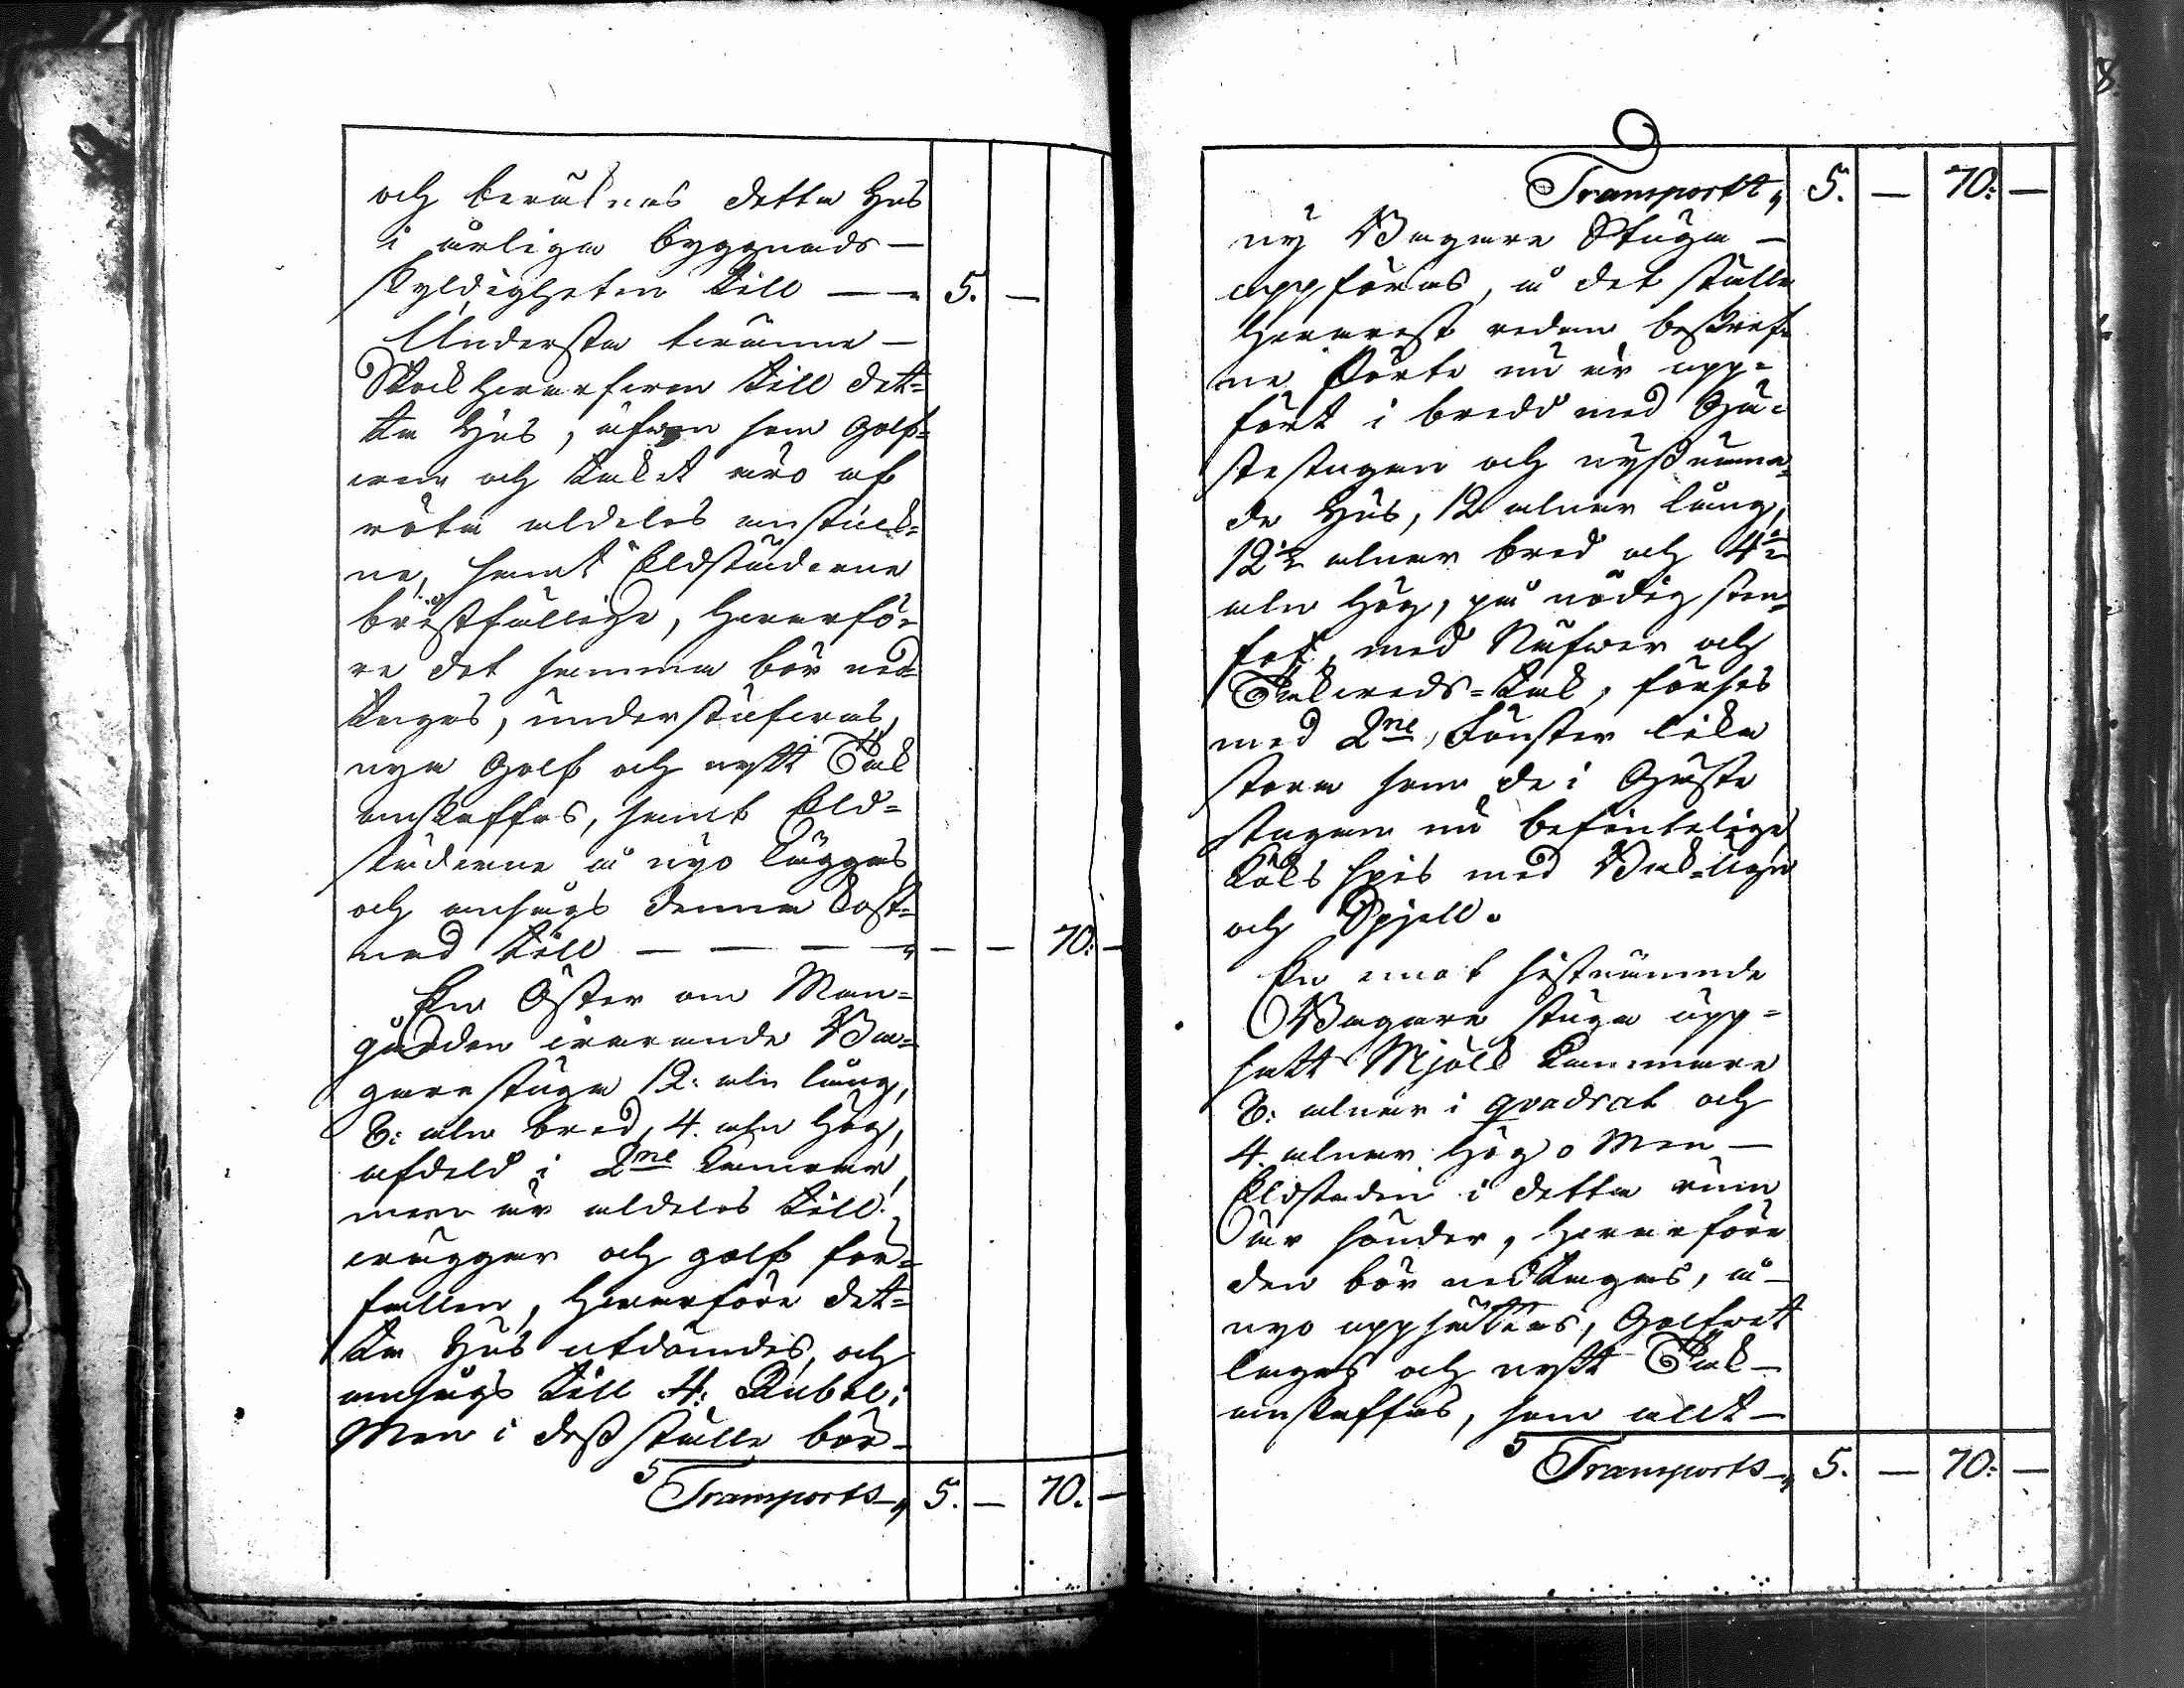 och beräknas detta Hus
i årliga byggnads—
skyldigheten till — — 5. —
Understa trenne —
Stockhvarfven till det=
ta Hus, äfven som Golf=
ven och taket äro af
röta aldeles anstuck=
ne, samt Eldstäderne
bristfällige, hvarfö=
re det samma bör ned=
tagas, understufvas,
nya Golf och nytt Tak
anskaffas, samt Eld=
städerne å nyo läggas
och anseags denna kost=
nad till — — — — — — 70: —
En Öster om Man=
gården varande Ba=
gare stuga 12: aln lång,
8: aln bred, 4. aln Hög,
afdeld i 2ne Kamrar,
men är aldeles till
väggar och golf för=
fallen, hvarföre det=
ta Hus utdömdes, och
ansågs till 4: Rubel:
Men i dess ställe bör—
Transport 5. — 70. —
Transport 5. — 70: —
ny Bagare Stuga —
uppföras, å det ställe
hvarest redan beskref=
ne Pörte nu är upp=
fört i bredd med Gä=
stestugan och nyssnämn=
de Hus, 12 alnar lång,
12½ alnar bred och 4½
aln Hög, på nödig sten=
fot, med Näfver och
Takveds=tak, förses
med 2ne Fönster lika
stora som de i Gäste
stugan nu befintelige
Köks spis med Bak=ugn
och Spjell.
En emot sistnämnde
Bagare stuga upp=
satt Mjölk Kammare
8: alnar i qvadrat och
4. alnar Hög. Men —
Eldstaden i detta rum
är sönder, hvarföre
den bör nedtagas, å—
nyo uppsättas, Golfvet
lagas och nytt Tak —
anskaffas, som allt —
Transport 5. — 70: —